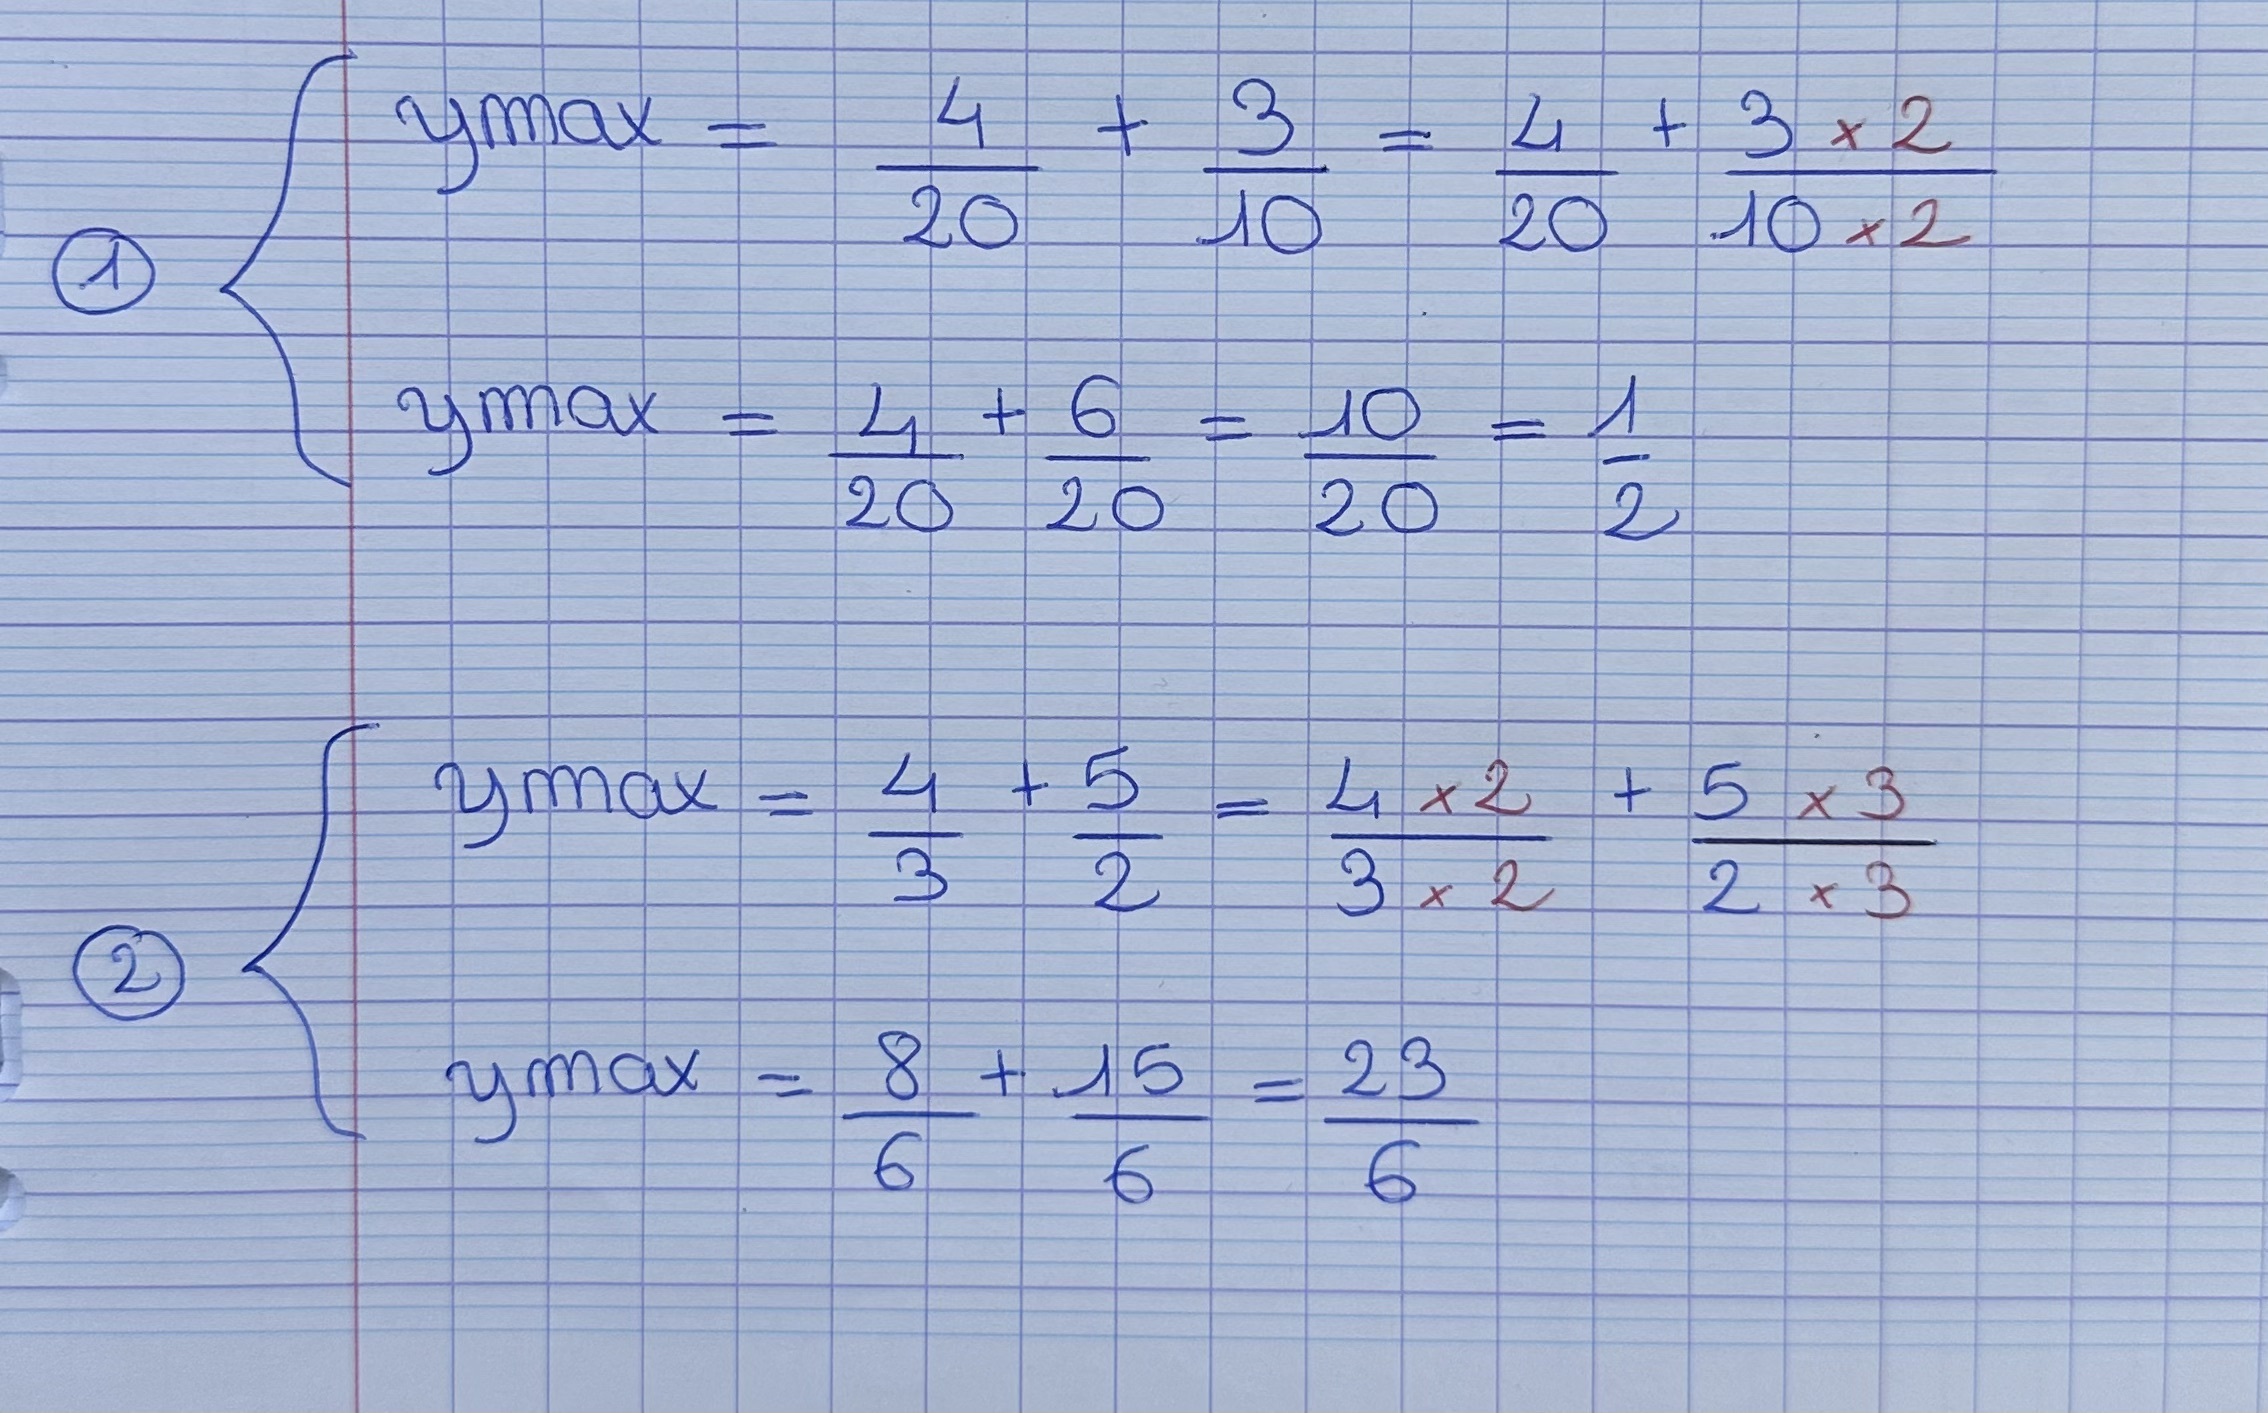 ① ymax = 4/20 + 3/10 = 4/20 + 3 × 2/10 × 2
ymax = 4/20 + 6/20 = 10/20 = 1/2
② ymax = 4/3 + 5/2 = 4 × 2/3 × 2 + 5 × 3/2 × 3
ymax = 8/6 + 15/6 = 23/6